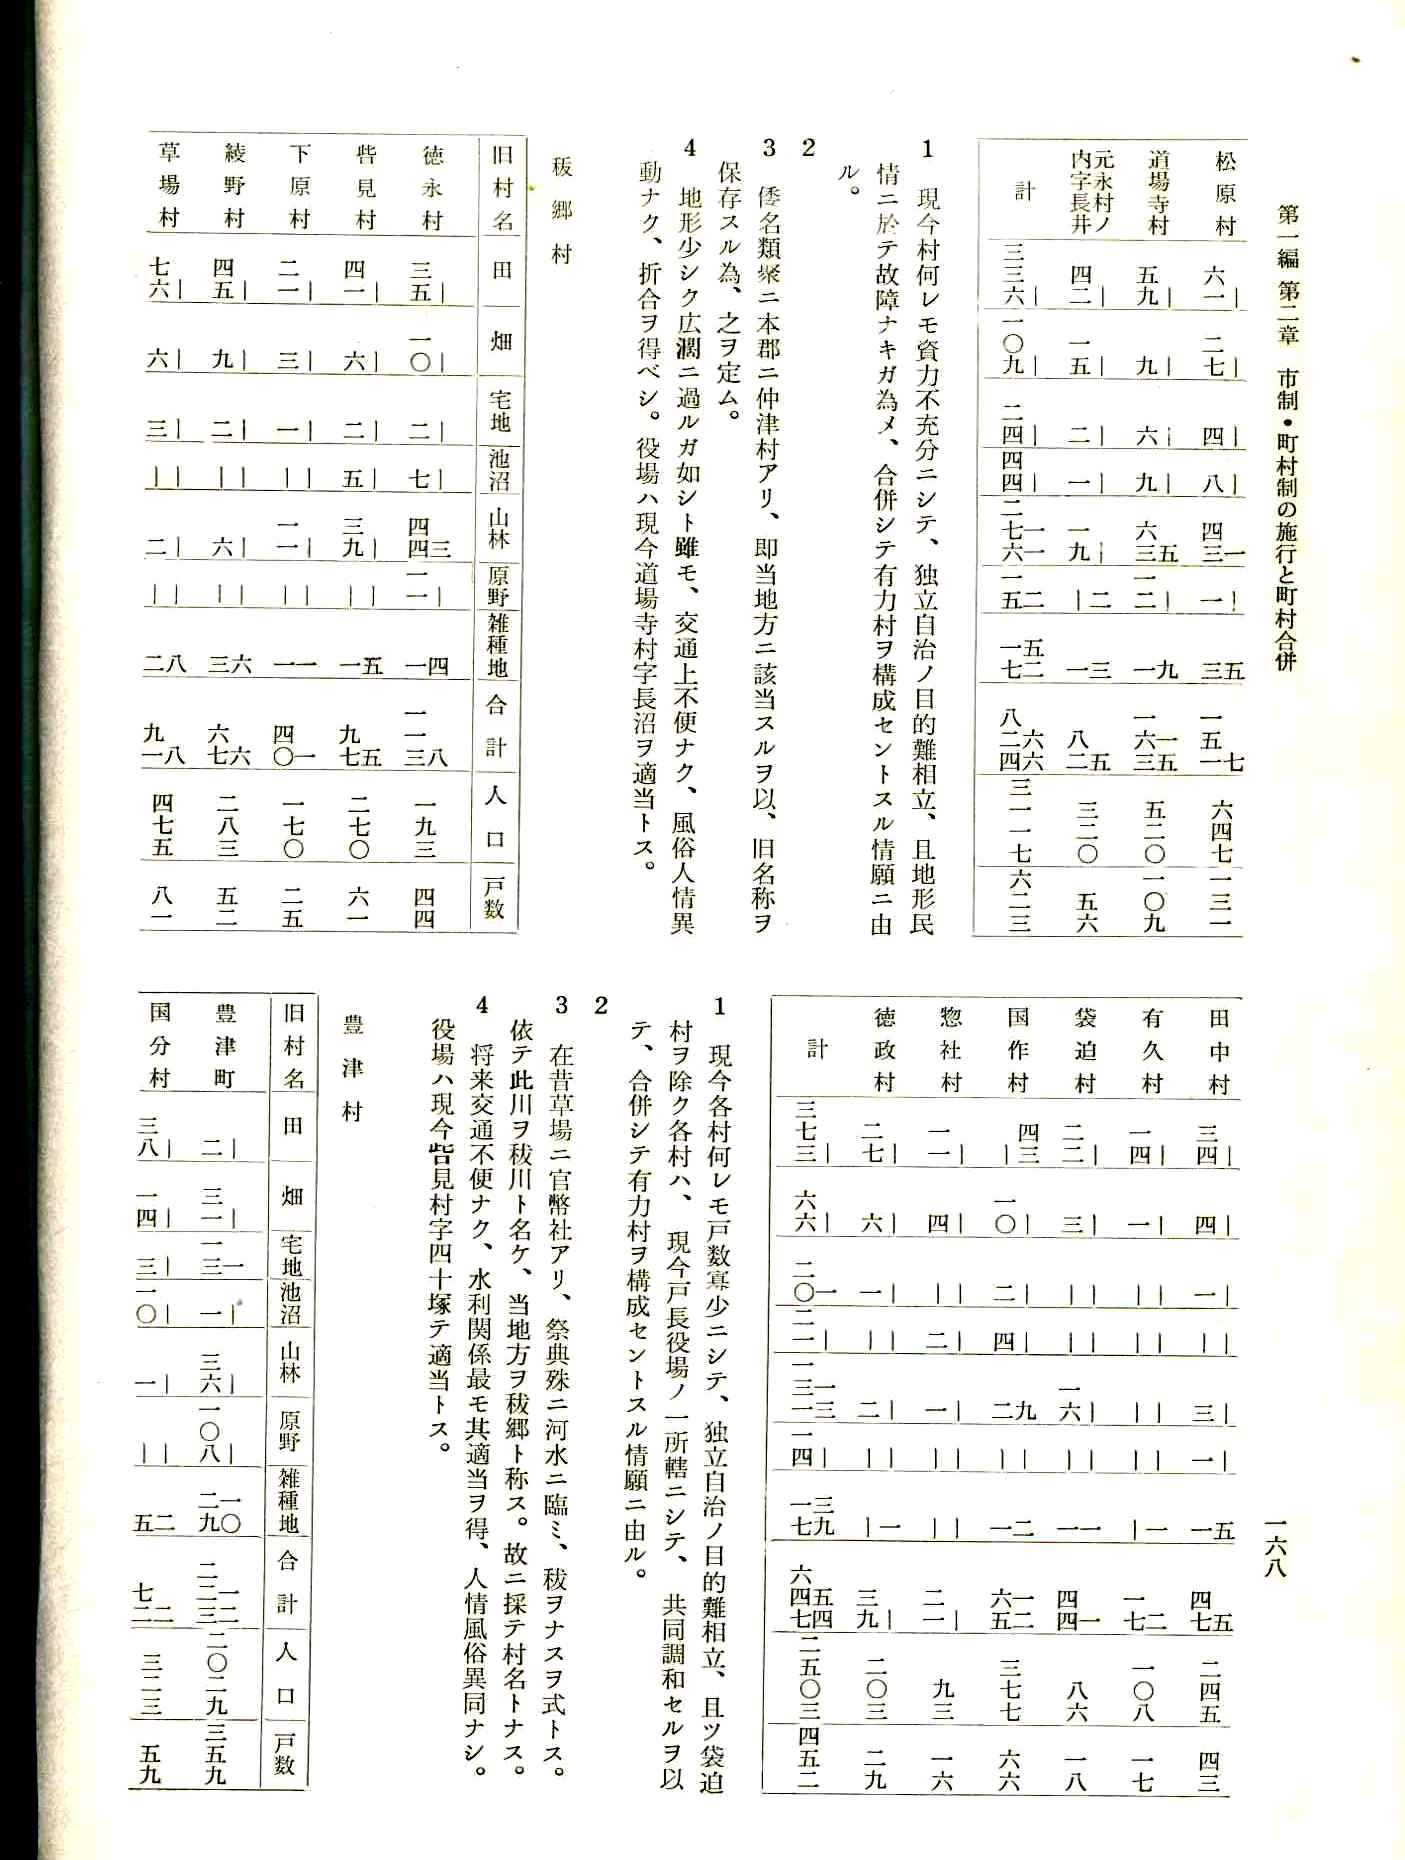 第一編 第二章 市制・町村制の施行と町村合併
一六八
松原村 六一| 二七| 四| 八| 四三一 一| 三五 一五一七 六四七 一三一
道場寺村 五九| 九| 六| 九| 六三五 一二| 一九 一六三一五 五二〇 一〇九
元永村ノ内字長井 四二| 一五| 二| 一| 一九| |二 一三 八二五 三二〇 五六
計 三三六| 一〇九| 二四| 四四| 二七六一一 一五二 一七五二 八二四六六 三一一七 六二三
1 現今村何レモ資力不充分ニシテ、独立自治ノ目的難相立、且地形民
情ニ於テ故障ナキガ為メ、合併シテ有力村ヲ構成セントスル情願ニ由
ル。
2
3 倭名類聚ニ本郡ニ仲津村アリ、即当地方ニ該当スルヲ以、旧名称ヲ
保存スル為、之ヲ定ム。
4 地形少シク広濶ニ過ルガ如シト雖モ、交通上不便ナク、風俗人情異
動ナク、折合ヲ得ベシ。役場ハ現今道場寺村字長沼ヲ適当トス。
秡郷村
旧村名 田 畑 宅地 池沼 山林 原野 雑種地 合計 人口 戸数
徳永村 三五| 一〇| 二| 七| 四四三 一一| 一四 一一三八 一九三 四四
呰見村 四一| 六| 二| 五| 三九| || 一五 九七五 二七〇 六一
下原村 二一| 三| 一| || 一一| || 一一 四〇一 一七〇 二五
綾野村 四五| 九| 二| || 六| || 三六 六七六 二八三 五二
草場村 七六| 六| 三| || 二| || 二八 九一八 四七五 八一
田中村 三四| 四| 一| || 三| 一| 一五 四七五 二四五 四三
有久村 一四| 一| || || || || |一 一七二 一〇八 一七
袋迫村 二二| 三| || || 一六| || 一一 四四一 八六 一八
国作村 四三| 一〇| 二| 四| 二九 || 一二 六五一二 三七七 六六
惣社村 一一| 四| || 二| 一| || || 二一| 九三 一六
徳政村 二七| 六| 一| || 二| || |一 三九| 二〇三 二九
計 三七三| 六六| 二〇一 二一| 一三一一三 一四| 一七三九 六四七五四 二五〇三 四五二
1 現今各村何レモ戸数寡少ニシテ、独立自治ノ目的難相立、且ツ袋迫
村ヲ除ク各村ハ、現今戸長役場ノ一所轄ニシテ、共同調和セルヲ以
テ、合併シテ有力村ヲ構成セントスル情願ニ由ル。
2
3 在昔草場ニ官幣社アリ、祭典殊ニ河水ニ臨ミ、秡ヲナスヲ式トス。
依テ此川ヲ秡川ト名ケ、当地方ヲ秡郷ト称ス。故ニ採テ村名トナス。
4 将来交通不便ナク、水利関係最モ其適当ヲ得、人情風俗異同ナシ。
役場ハ現今呰見村字四十塚テ適当トス。
豊津村
旧村名 田 畑 宅地 池沼 山林 原野 雑種地 合計 人口 戸数
豊津町 二| 三一| 一三一 一| 三六| 一〇八| 二九一〇 二二三一二 二〇二九 三五九
国分村 三八| 一四| 三| 一〇| 一| || 五二 七二二二 三二三 五九